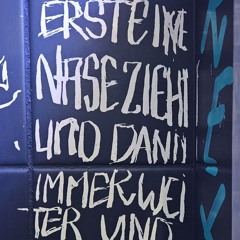 ERST EINE
NASE ZIEHI
UND DANN
IMMER WEI
TER UND